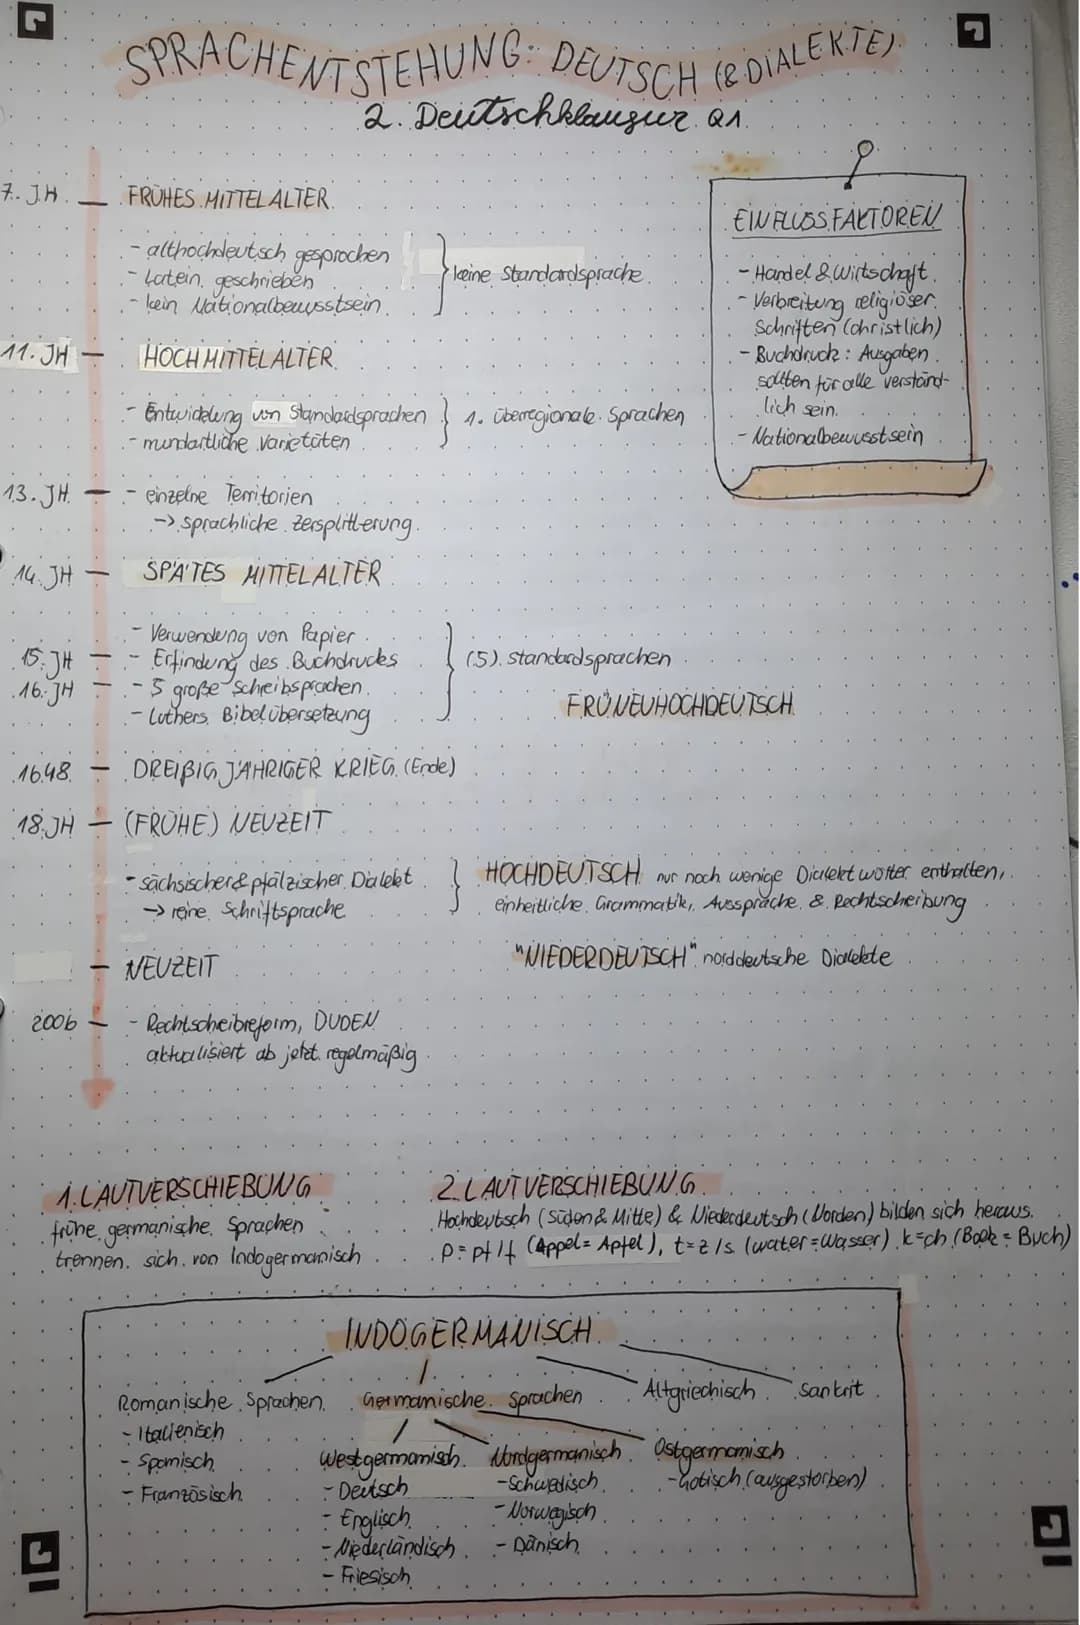 SPRACHENTSTEHUNG: DEUTSCH (& DIALEKTE)
2. Deutschklausur Q1
7. JH. FRÜHES MITTELALTER
- althochdeutsch gesprochen
- Latein geschrieben
- kein Nationalbewusstsein
keine Standardsprache
11. JH HOCHMITTELALTER
- Entwicklung von Standardsprachen
- mundartliche Varietäten
1. überregionale Sprachen
13. JH. - einzelne Territorien
-> sprachliche Zersplitterung
14. JH SPÄTES MITTELALTER
- Verwendung von Papier
15. JH - Erfindung des Buchdruckes
16. JH - 5 große Schreibsprachen
- Luthers Bibelübersetzung
(5) Standardsprachen
FRÜNEUHOCHDEUTSCH
1648 DREIßIGJÄHRIGER KRIEG (Ende)
18. JH (FRÜHE) NEUZEIT
- sächsischer & pfälzischer Dialekt
-> reine Schriftsprache
HOCHDEUTSCH nur noch wenige Dialektwörter enthalten,
einheitliche Grammatik, Aussprache & Rechtscheibung
NEUZEIT
"NIEDERDEUTSCH" norddeutsche Dialekte
2006 - Rechtscheibreform, DUDEN
aktualisiert ab jetzt regelmäßig
EINFLUSSFAKTOREN
- Handel & Wirtschaft
- Verbreitung religiöser
Schriften (christlich)
- Buchdruck: Ausgaben
sollten für alle verständ-
lich sein.
- Nationalbewusstsein
1. LAUTVERSCHIEBUNG
frühe germanische Sprachen
trennen sich von Indogermanisch
2. LAUTVERSCHIEBUNG
Hochdeutsch (Süden & Mitte) & Niederdeutsch (Norden) bilden sich heraus.
p = pf/f (Appel = Apfel), t = z/s (water = Wasser) k = ch (Book = Buch)
INDOGERMANISCH
Romanische Sprachen Germanische Sprachen Altgriechisch Sankrit
- Italienisch
- Spanisch
- Französisch
Westgermanisch
- Deutsch
- Englisch
- Niederländisch
- Friesisch
Nordgermanisch
- Schwedisch
- Norwegisch
- Dänisch
Ostgermanisch
- Gotisch (ausgestorben)